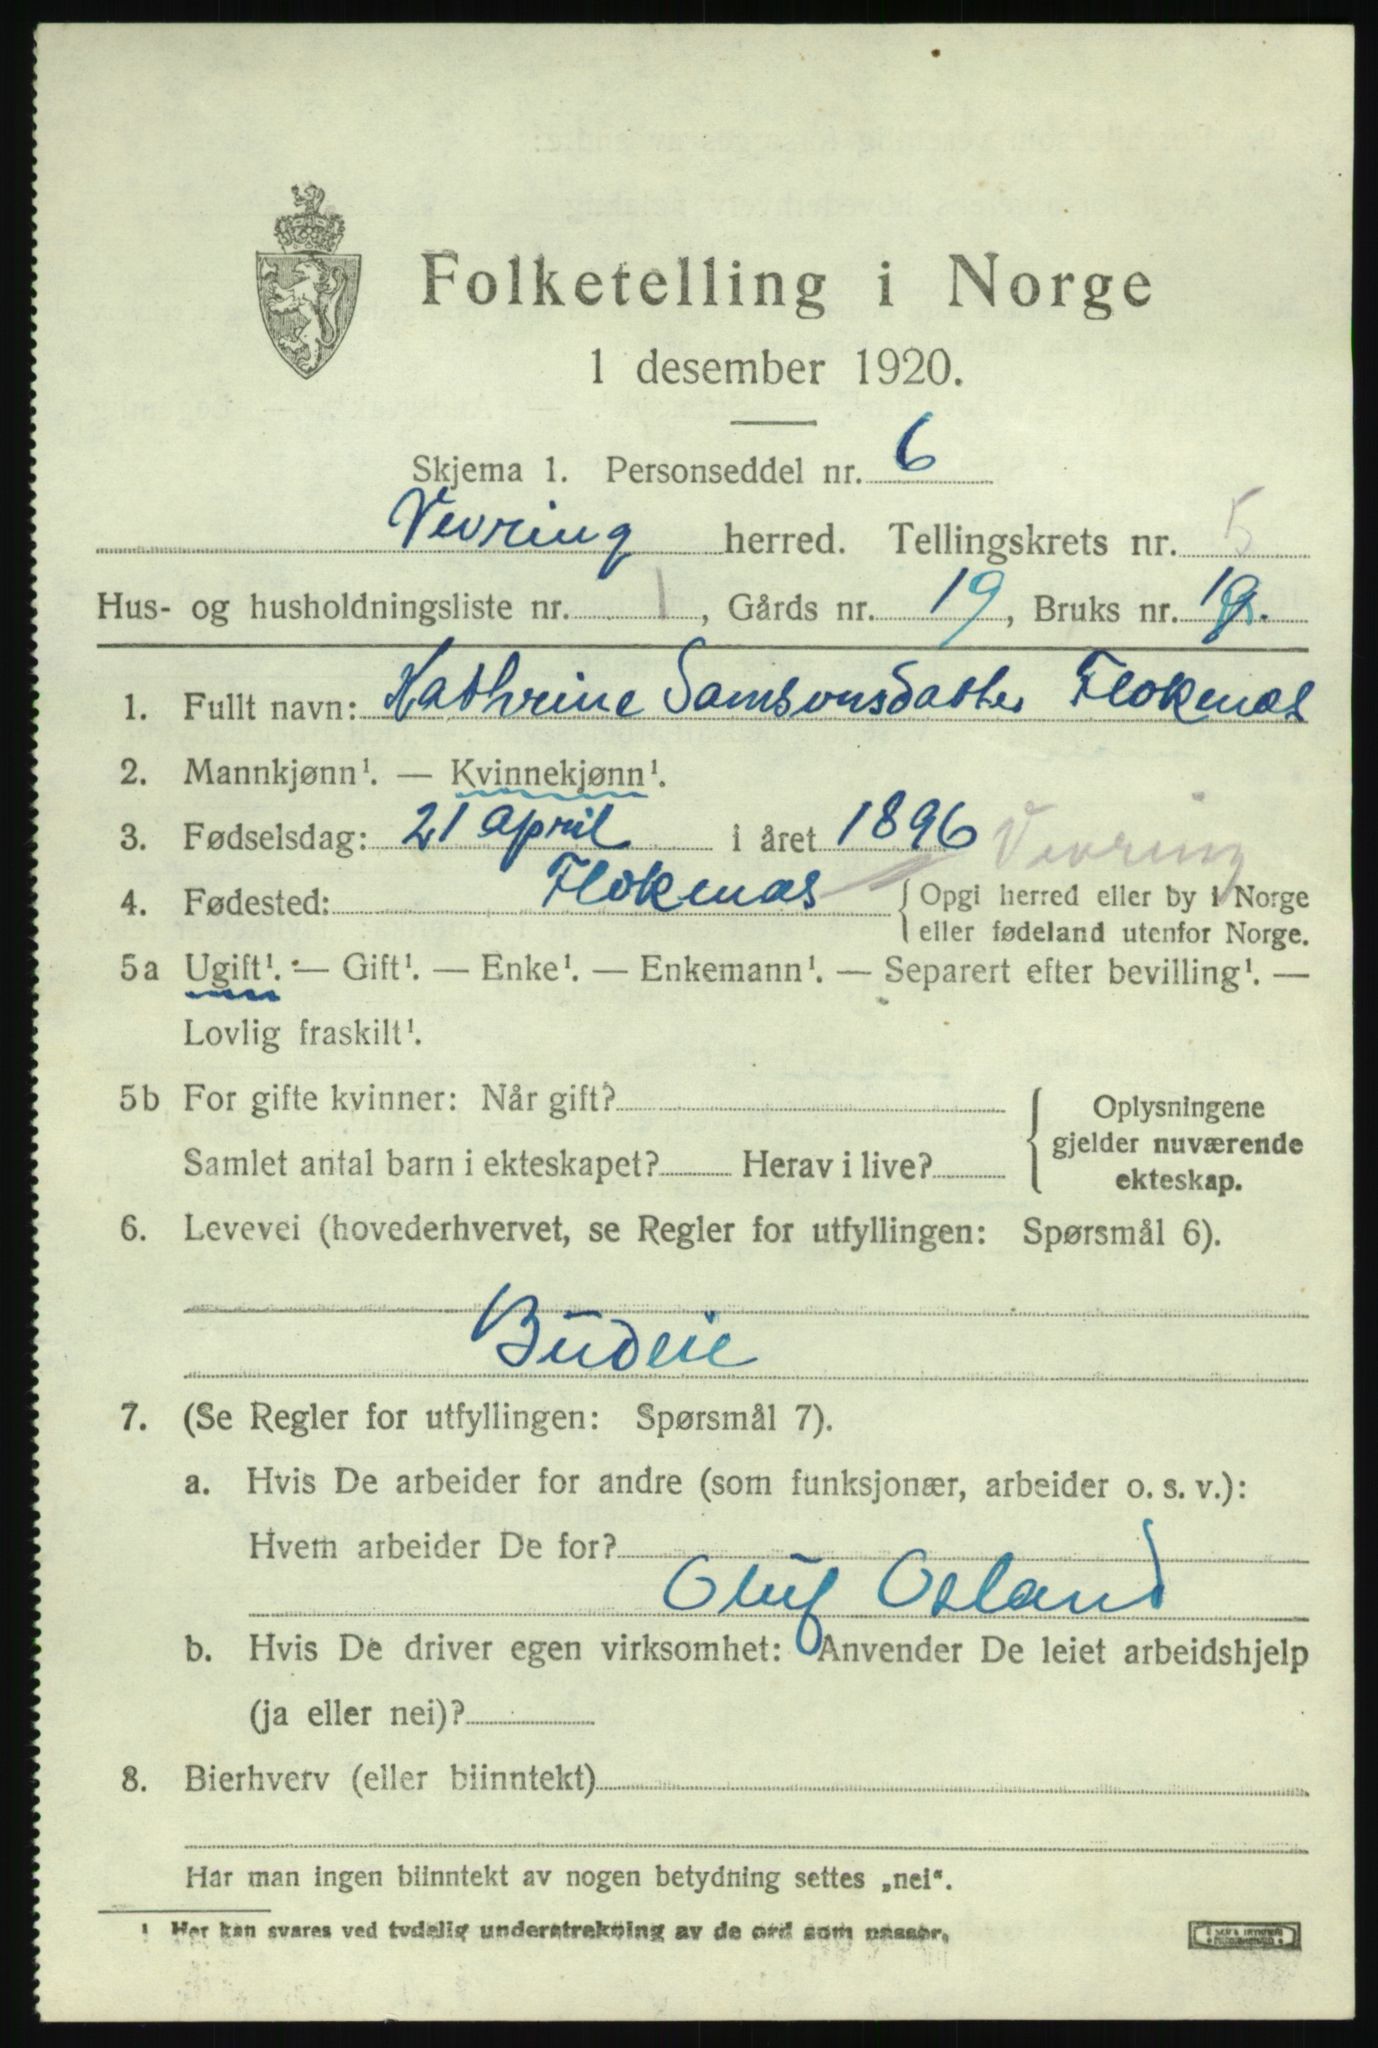 Folketelling i Norge
1 desember 1920.
Skjema 1. Personseddel nr. 6
Vevring herred. Tellingskrets nr. 5
Hus- og husholdningsliste nr. 1, Gårds nr. 19, Bruks nr.
1. Fullt navn: Kathrine Samsonsdatter Flokenæs
2. Mannkjønn¹. — Kvinnekjønn¹.
3. Fødselsdag: 21 april i året 1896 Vevring
4. Fødested: Flokenæs { Opgi herred eller by i Norge
eller fødeland utenfor Norge.
5a Ugift¹. — Gift¹. — Enke¹. — Enkemann¹. — Separert efter bevilling¹. —
Lovlig fraskilt¹.
5b For gifte kvinner: Når gift? { Oplysningene
gjelder nuværende
Samlet antal barn i ekteskapet? Herav i live?
ekteskap.
6. Levevei (hovederhvervet, se Regler for utfyllingen: Spørsmål 6).
Budeie
7. (Se Regler for utfyllingen: Spørsmål 7).
a. Hvis De arbeider for andre (som funksjonær, arbeider o. s. v.):
Hvem arbeider De for?
Oluf Osland
b. Hvis De driver egen virksomhet: Anvender De leiet arbeidshjelp
(ja eller nei)?
8. Bierhverv (eller biinntekt)
Har man ingen biinntekt av nogen betydning settes „nei“.
¹ Her kan svares ved tydelig understrekning av de ord som passer.